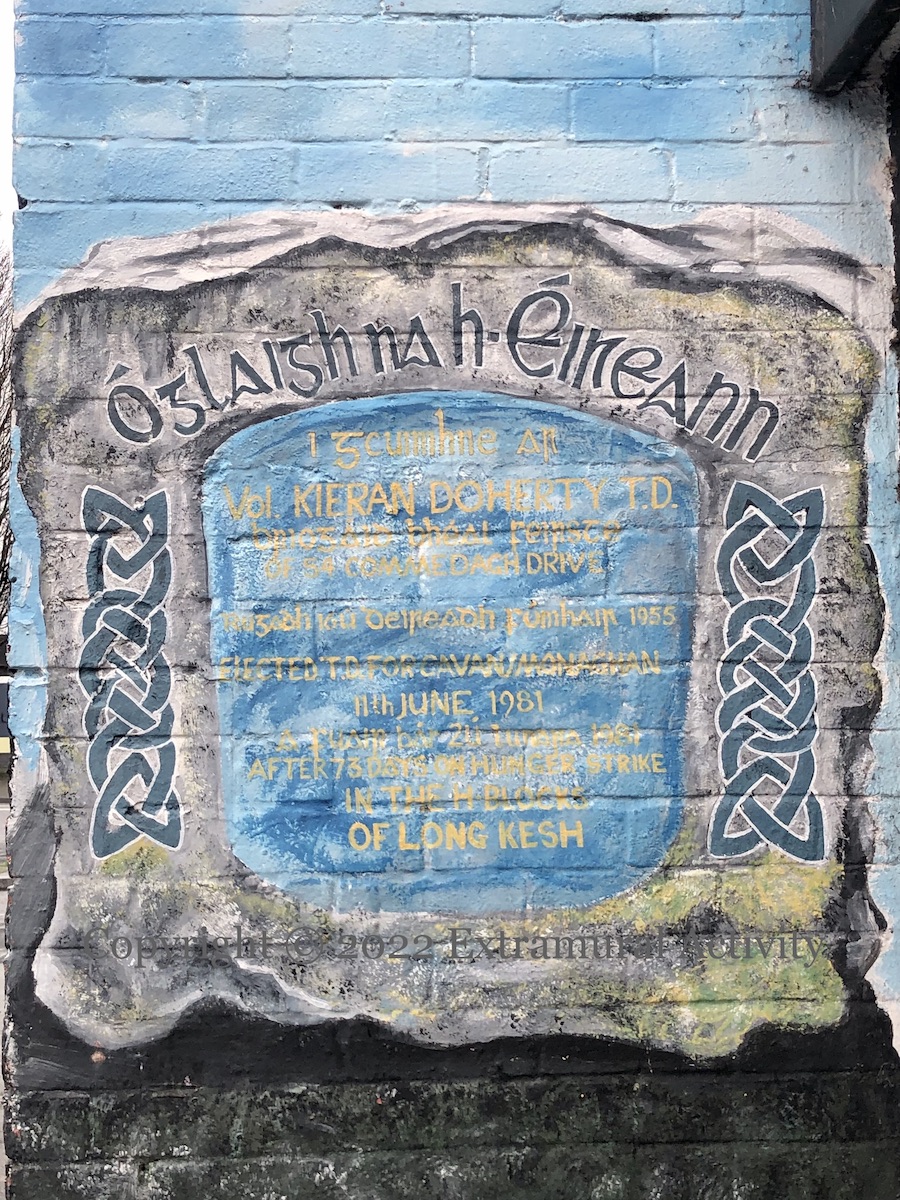 Óglaigh na h-Éireann
i gcuimhne ar
Vol. KIERAN DOHERTY T.D.
briogáid bhéal feirste
OF 54 COMMEDAGH DRIVE
rugadh deireadh fómhair 1955
ELECTED T.D. FOR CAVAN/MONAGHAN
11th JUNE 1981
A fuair bás 1981
AFTER 73 DAYS ON HUNGER STRIKE
IN THE H-BLOCKS
OF LONG KESH
Copyright © 2022 Extramural Activity